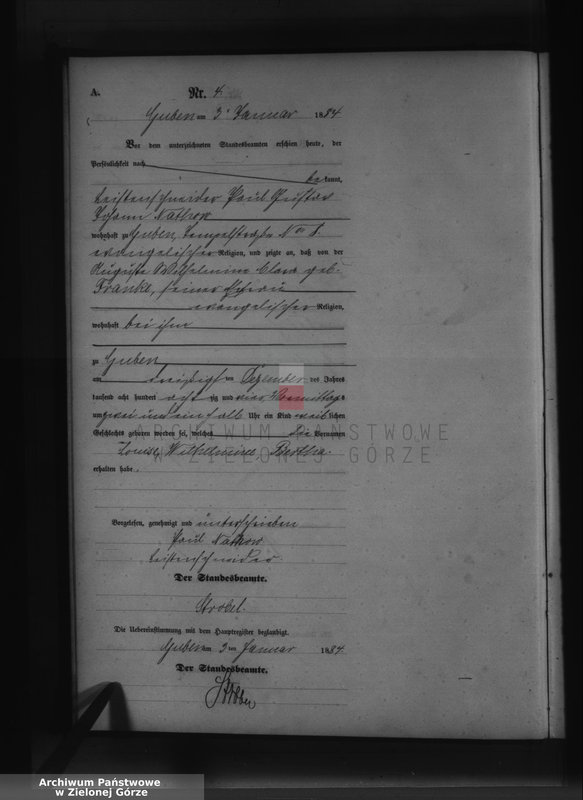 A. Nr. 4.
Guben am 3. Januar 1884
Vor dem unterzeichneten Standesbeamten erschien heute, der
Persönlichkeit nach
bekannt,
Leistenschneider Paul Gustav
Johann Nattrow
wohnhaft zu Guben,
evangelischer Religion, und zeigte an, daß von der
Auguste Wilhelmine Clara geb.
Franke, seiner Ehefrau
evangelischer Religion,
wohnhaft bei ihm
zu Guben
am dreißigsten Dezember des Jahres
tausend acht hundert achtzig und drei Vormittags
um zwei und ein halb Uhr ein Kind weiblichen
Geschlechts geboren worden sei, welches die Vornamen
Louise Wilhelmine Bertha
erhalten habe.
Vorgelesen, genehmigt und unterschrieben
Paul Nattrow
Leistenschneider
Der Standesbeamte.
Strobel.
Die Uebereinstimmung mit dem Hauptregister beglaubigt.
Guben am 3ten Januar 1884
Der Standesbeamte.
ARCHIWUM PAŃSTWOWE
W ZIELONEJ GÓRZE
Archiwum Państwowe
w Zielonej Górze